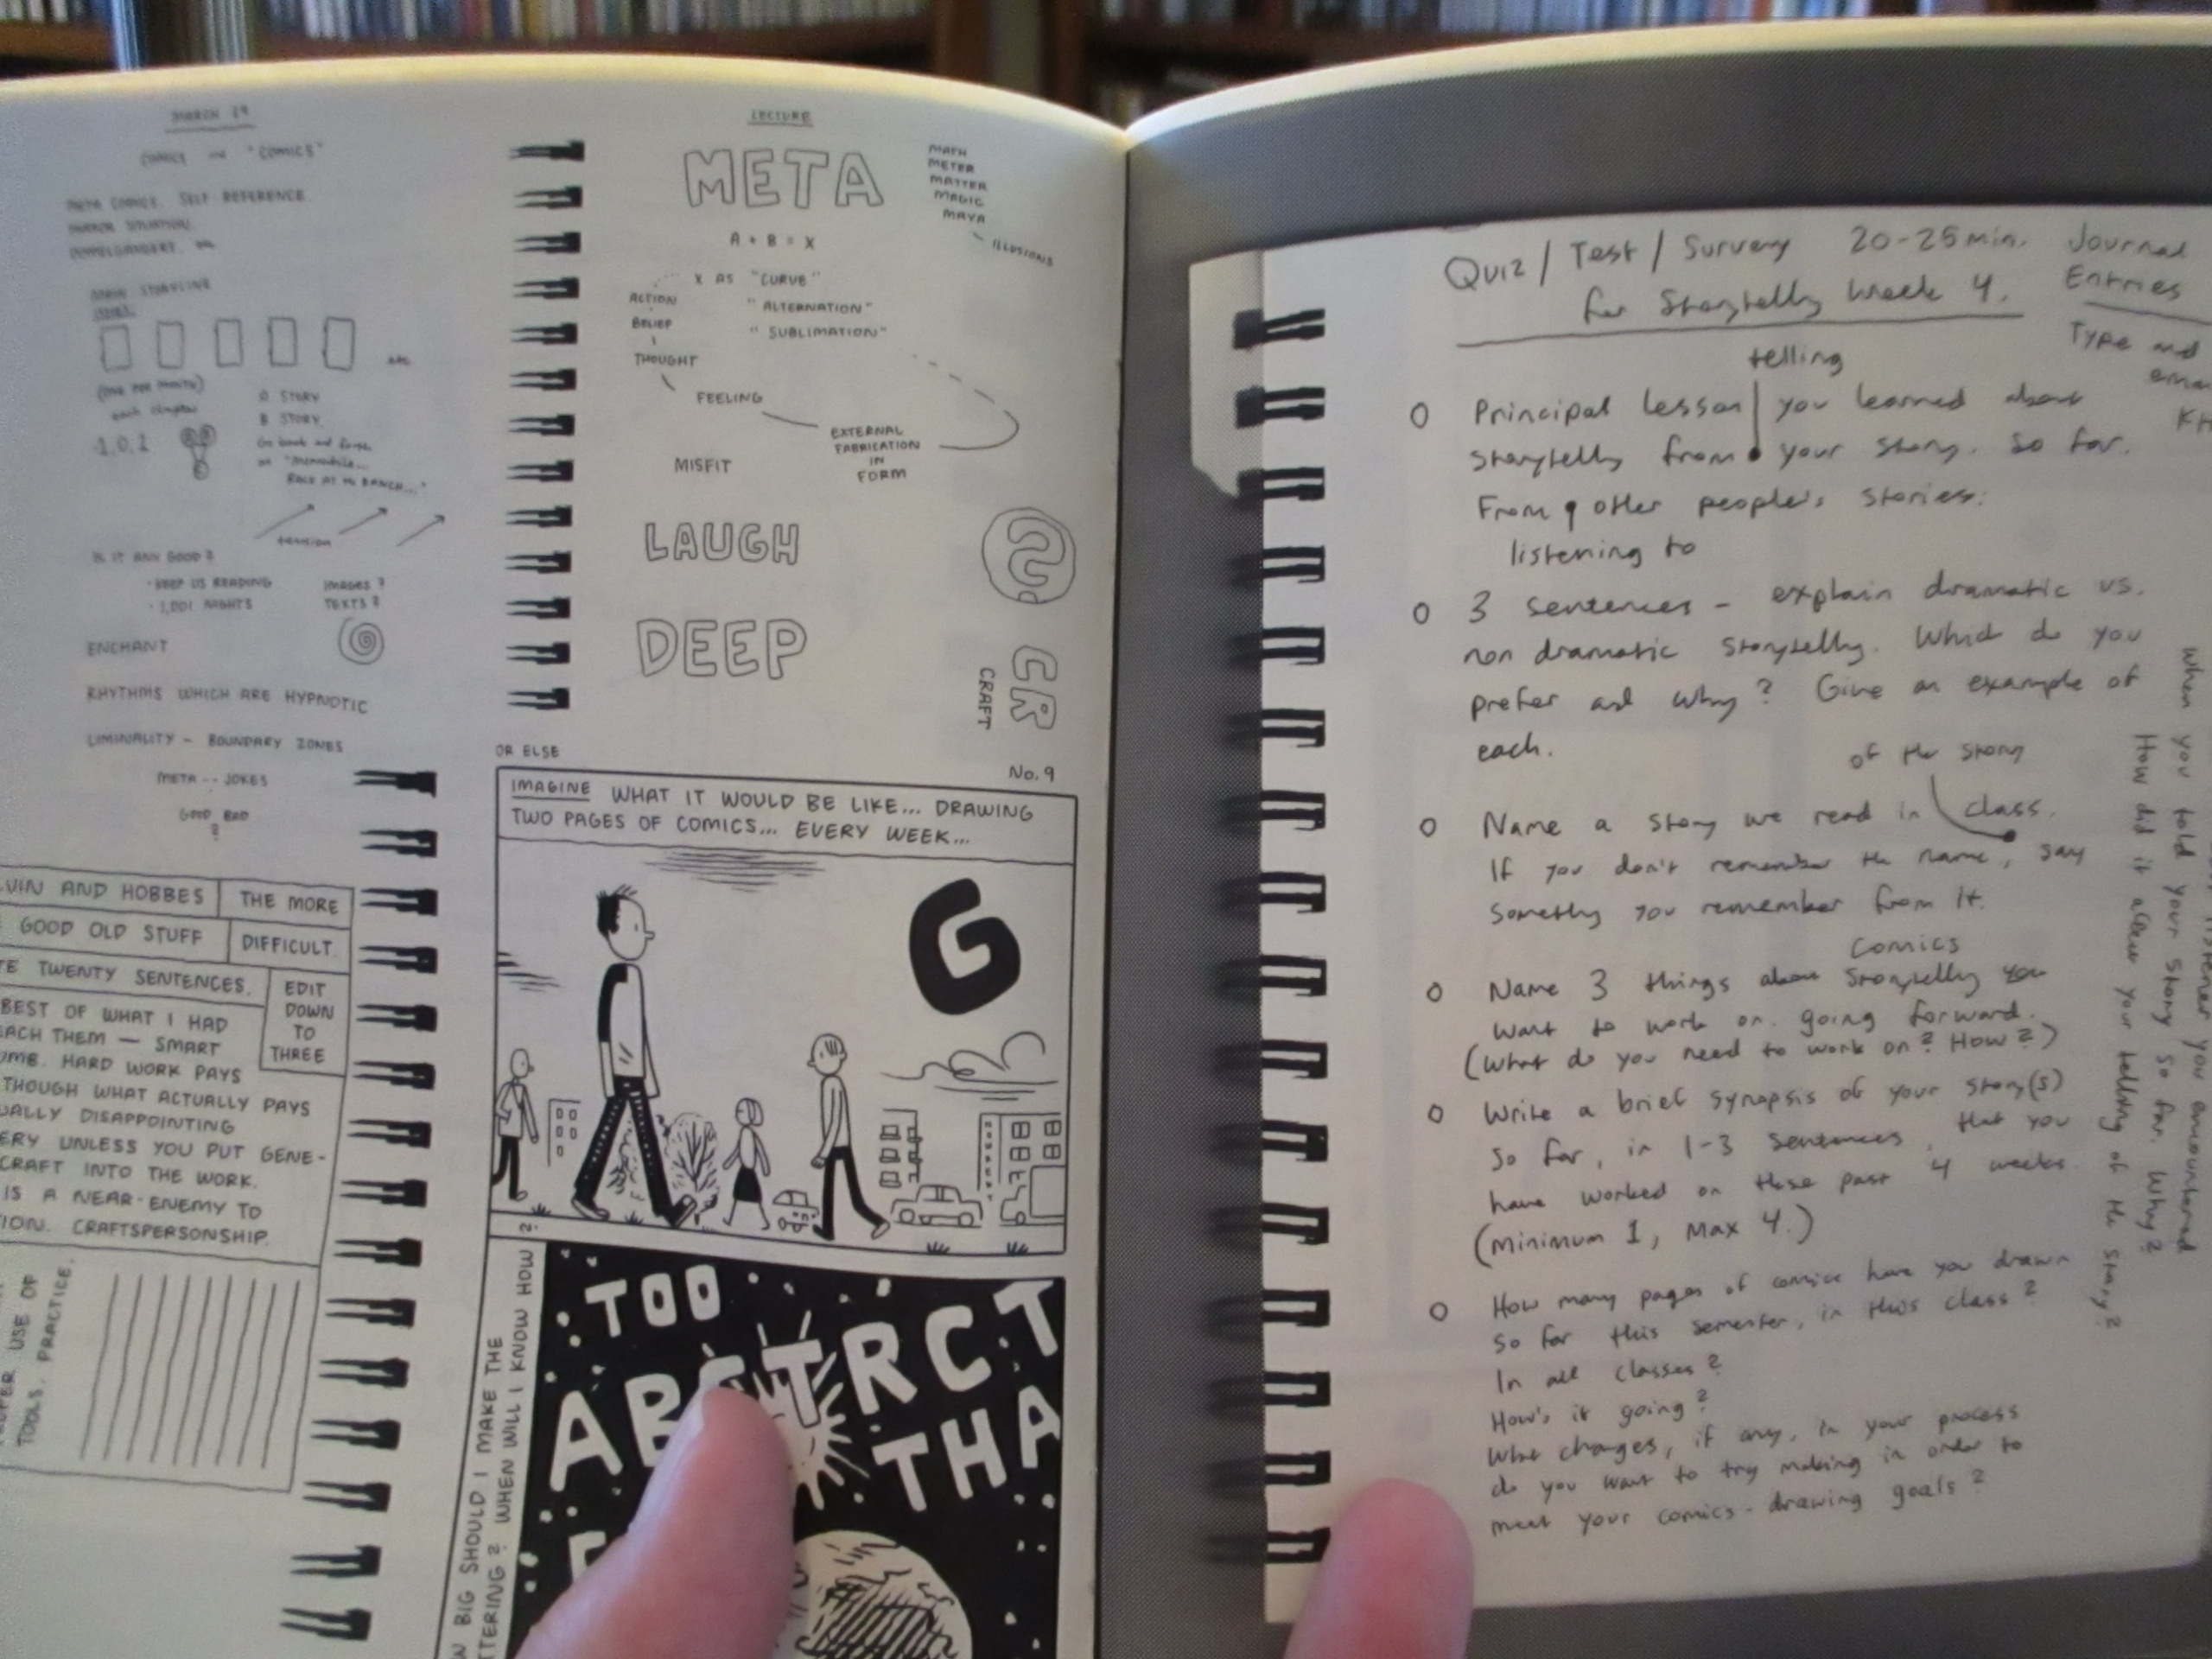 MARCH 29
COMICS "COMICS"
META COMICS. SELF REFERENCE.
MIRROR
DOPPELGANGERS.
MAIN STORYLINE
etc.
(ONE PER MONTH)
each chapter
-1, 0, 1
A STORY
B STORY
Go back and forth
as "Meanwhile...
BACK AT the RANCH..."
tension
IS IT ANY GOOD?
• KEEP US READING
• 1,001 NIGHTS
IMAGES?
TEXTS?
ENCHANT
RHYTHMS WHICH ARE HYPNOTIC
LIMINALITY — BOUNDARY ZONES
META -- JOKES
GOOD BAD
?
VIN AND HOBBES
THE MORE
GOOD OLD STUFF
DIFFICULT.
TE TWENTY SENTENCES.
EDIT
DOWN
TO
THREE
BEST OF WHAT I HAD
EACH THEM — SMART
UMB. HARD WORK PAYS
THOUGH WHAT ACTUALLY PAYS
UALLY DISAPPOINTING
ERY UNLESS YOU PUT GENE-
CRAFT INTO THE WORK.
IS A NEAR-ENEMY TO
TION. CRAFTSPERSONSHIP.
USE OF
TOOLS. PRACTICE.
LECTURE
META
MATH
METER
MATTER
MAGIC
MAYA
— ILLUSIONS
A + B = X
X AS "CURVE"
"ALTERNATION"
"SUBLIMATION"
ACTION
BELIEF
THOUGHT
FEELING
EXTERNAL
FABRICATION
IN
FORM
MISFIT
LAUGH
DEEP
CR
CRAFT
OR ELSE
No. 9
IMAGINE WHAT IT WOULD BE LIKE... DRAWING
TWO PAGES OF COMICS... EVERY WEEK...
G
W BIG SHOULD I MAKE THE
TTERING? WHEN WILL I KNOW HOW?
TOO
ABSTRCT
THA
Quiz / Test / Survey 20-25 min.
for Storytelly Week 4.
Journal
Entries
Type and
telling
O Principal lesson you learned about
storytelly from your story. So far.
From other people's stories:
listening to
O 3 sentences – explain dramatic vs.
non dramatic storytelly. Which do you
prefer and why? Give an example of
each.
of the story
O Name a story we read in class.
If you don't remember the name, say
somethy you remember from it.
Comics
O Name 3 things about Storytelly you
want to work on going forward.
(What do you need to work on? How?)
O Write a brief synopsis of your story(s)
so far, in 1-3 sentences, that you
have worked on these past 4 weeks.
(Minimum 1, Max 4.)
O How many pages of comics have you drawn
so far this semester, in this class?
In all classes?
How's it going?
What changes, if any, in your process
do you want to try making in order to
meet your comics-drawing goals?
you encountered
When you told your story so far. Why?
How did it alter your telling of the story?